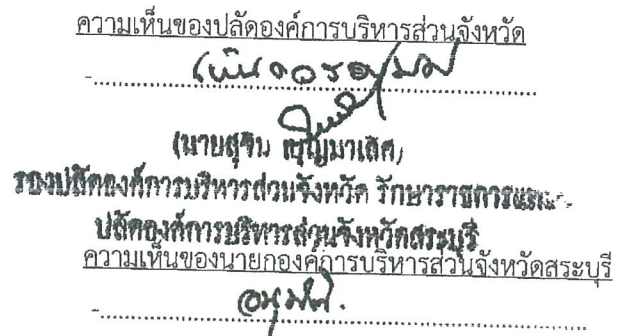 ความเห็นของปลัดองค์การบริหารส่วนจังหวัด
เห็นควรอนุมัติ
(นายสุจิน บุญมาเลิศ)
รองปลัดองค์การบริหารส่วนจังหวัด รักษาราชการแทน
ปลัดองค์การบริหารส่วนจังหวัดสระบุรี
ความเห็นของนายกองค์การบริหารส่วนจังหวัดสระบุรี
อนุมัติ.